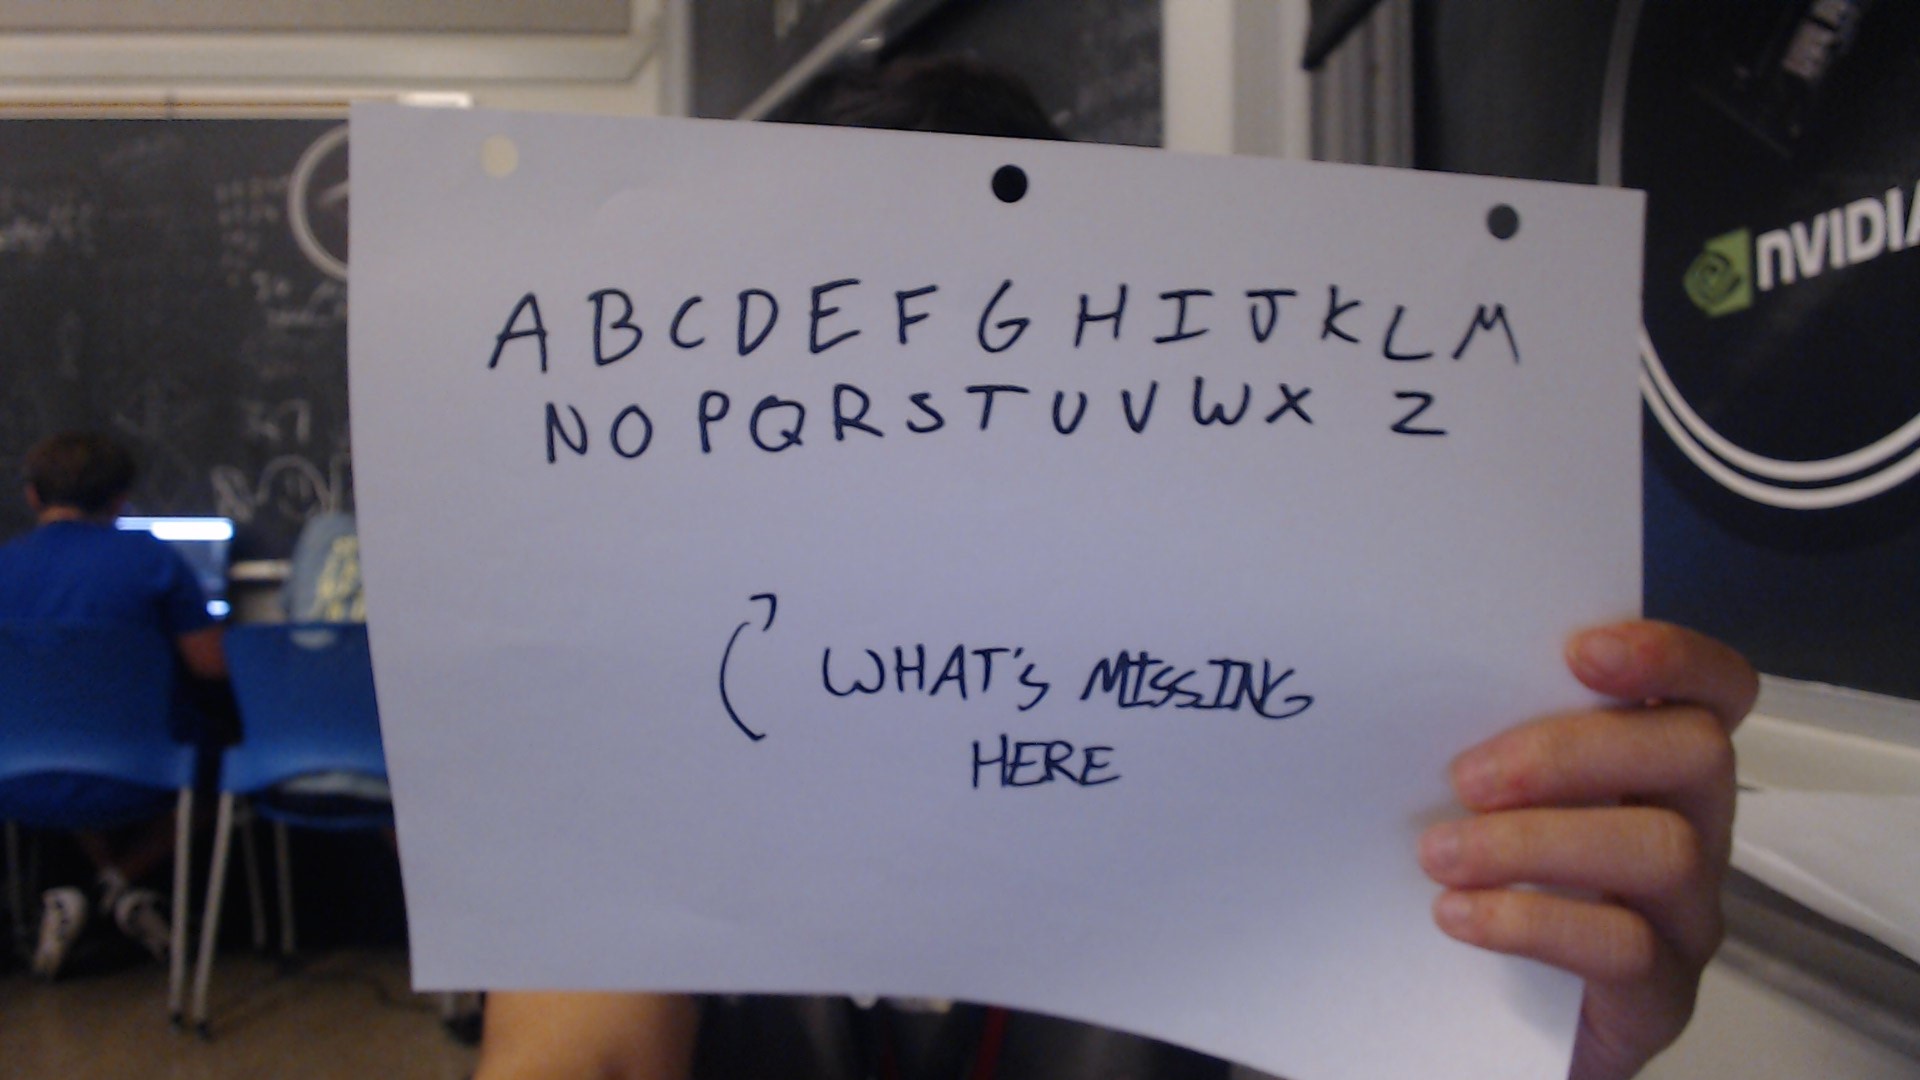 A B C D E F G H I J K L M
N O P Q R S T U V W X Z
WHAT'S MISSING
HERE
NVIDIA